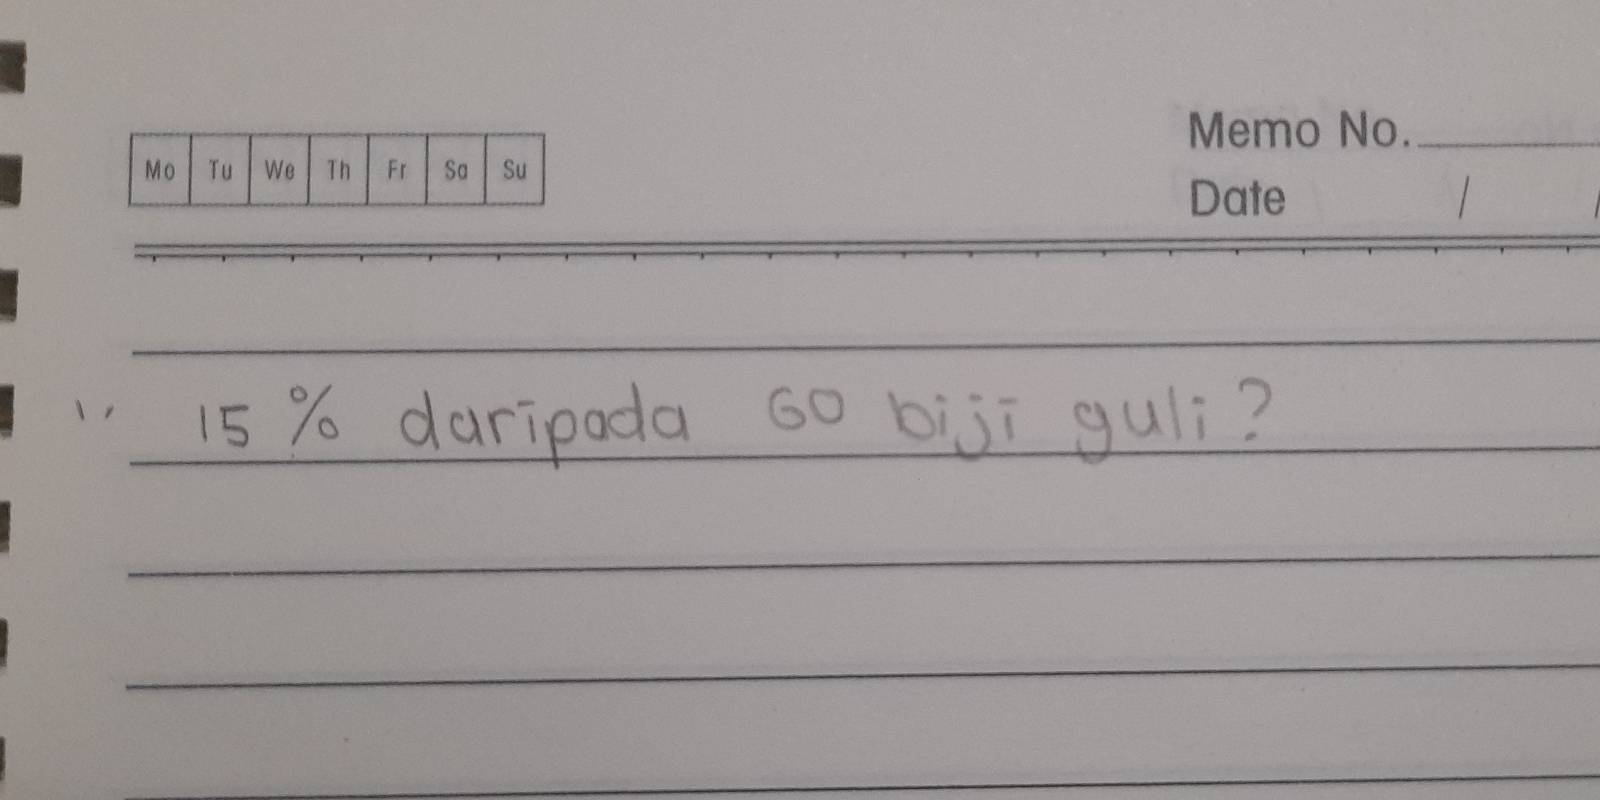 Mo Tu We Th Fr Sa Su
Memo No.
Date / /
1. 15 % daripada 60 biji guli?